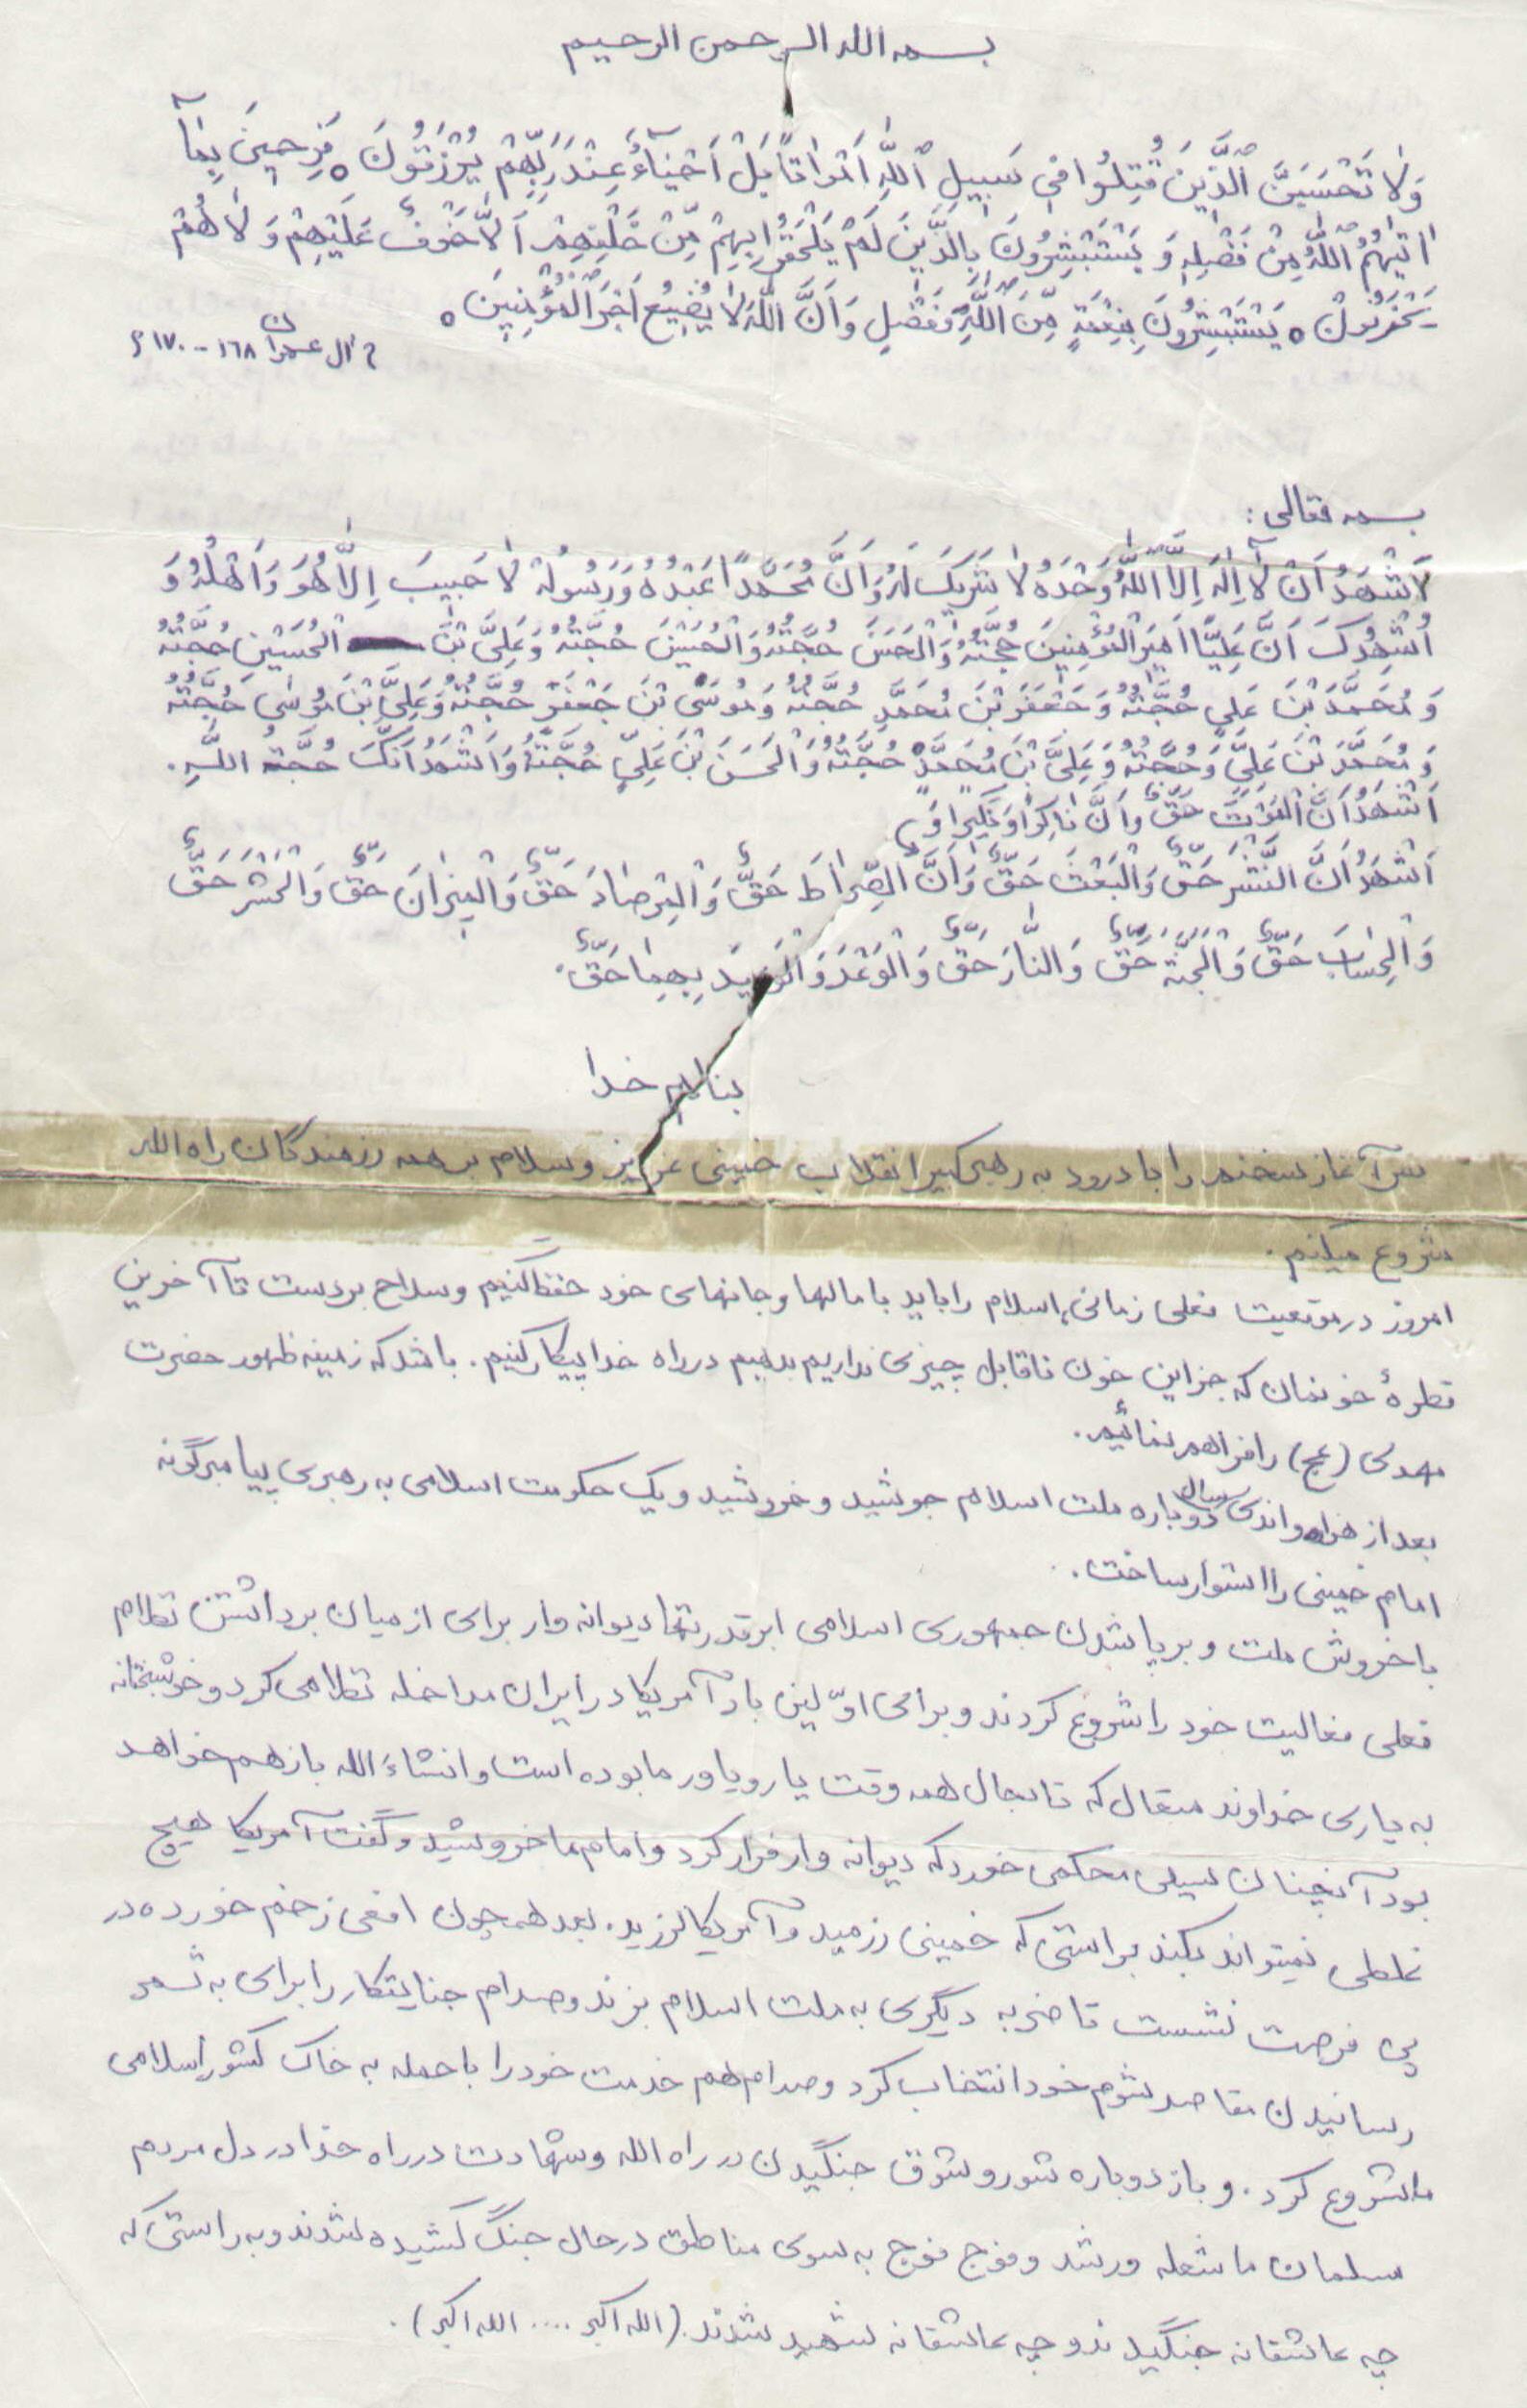 بسمه الله الرحمن الرحیم
وَلاٰ تَحْسَبَنَّ ٱلَّذَّینَ قُتِلُوا فی سَبیلِ ٱللّٰهِ اَمْوٰاتاً بَلْ اَحْیٰآءٌ عِنْدَ رَبِّهِمْ یُرْزَقُونَ ۰ فَرِحینَ بِمٰآ
اٰتٰیهُمُ ٱللّٰهُ مِنْ فَضْلِهِ وَ یَسْتَبْشِرُونَ بِالَّذَینَ لَمْ یَلْحَقُوا بِهِمْ مِّنْ خَلْفِهِمْ اَلاّٰ خَوْفٌ عَلَیْهِمْ وَ لاٰ هُمْ
یَحْزَنُونَ ۰ یَسْتَبْشِرُونَ بِنِعْمَةٍ مِّنَ ٱللّٰهِ وَ فَضْلٍ وَ اَنَّ ٱللّٰهَ لاٰ یُضیٖعُ اَجْرَ ٱلْمُؤْمِنینَ ۰
{ آل عمران ۱۶۸ - ۱۷۰ }
بسمه تعالی :
اَشْهَدُ اَنْ لآ اِلٰهَ اِلاَّ اللّٰهُ وَحْدَهُ لاٰ شَریکَ لَهُ وَ اَنَّ مُحَمَّداً عَبْدُهُ وَ رَسُولُهُ لاٰ حَبیبَ اِلاّٰ هُوَ وَ اَهْلُهُ وَ
اُشْهِدُکَ اَنَّ عَلِیّاً اَمیرَ الْمُؤْمِنینَ حُجَّتُهُ وَ الْحَسَنَ حُجَّتُهُ وَ الْحُسَیْنَ حُجَّتُهُ وَ عَلِیَّ بْنَ الْحُسَیْنِ حُجَّتُهُ
وَ مُحَمَّدَ بْنَ عَلیٍ حُجَّتُهُ وَ جَعْفَرَ بْنَ مُحَمَّدٍ حُجَّتُهُ وَ مُوسَی بْنَ جَعْفَرٍ حُجَّتُهُ وَ عَلِیَّ بْنَ مُوسٰی حُجَّتُهُ
وَ مُحَمَّدَ بْنَ عَلِیٍّ وَ حُجَّتُهُ وَ عَلِیَّ بْنَ مُحَمَّدٍ حُجَّتُهُ وَ الْحَسَنَ بْنَ عَلِیٍّ حُجَّتُهُ وَ اَشْهَدُ اَنَّکَ حُجَّتُ اللّٰهِ .
اَشْهَدُ اَنَّ الْمَوْتَ حَقٌّ وَ اَنَّ نٰاکِراً وَ نَکیراً وَ
اَشْهَدُ اَنَّ النَّشْرَ حَقٌّ وَ الْبَعْثَ حَقٌّ وَ اَنَّ الصِّرٰاطَ حَقٌّ وَ الْمِرْصٰادَ حَقٌّ وَ الْمیزٰانَ حَقٌّ وَ الْحَشْرَ حَقٌّ
وَ الْحِسٰابَ حَقٌّ وَ الْجَنَّةَ حَقٌّ وَ النّٰارَ حَقٌّ وَ الْوَعْدَ وَ الْوَعیدَ بِهِمٰا حَقٌّ .
بنام خدا
سرآغاز سخنم را با درود به رهبر کبیر انقلاب خمینی عزیز و سلام بر همه رزمندگان راه الله
شروع میکنم .
امروز در موقعیت فعلی زمانی، اسلام را باید با مالها و جانهای خود حفظ کنیم و سلاح بر دست تا آخرین
قطرهٔ خونمان که جز این خون ناقابل چیزی نداریم بدهیم در راه خدا پیکار کنیم . باشد که زمینه ظهور حضرت
مهدی (عج) را فراهم نمائیم .
بعد از هزار و اندی سال دوباره ملت اسلام جوشید و خروشید و یک حکومت اسلامی به رهبری پیامبرگونه
امام خمینی را استوار ساخت .
با خروش ملت و برپا شدن جمهوری اسلامی ابرقدرتها دیوانه وار برای از میان برداشتن نظام
فعلی فعالیت خود را شروع کردند و برای اوّلین بار آمریکا در ایران مداخله نظامی کرد و خوشبختانه
به یاری خداوند متعال که تابحال همه وقت یار و یاور ما بوده است و انشاءالله باز هم خواهد
بود آنچنان سیلی محکمی خورد که دیوانه وار فرار کرد و امام ما خروشید و گفت آمریکا هیچ
غلطی نمیتواند بکند براستی که خمینی رزمید و آمریکا لرزید . بعد همچون افعی زخم خورده در
پی فرصت نشست تا ضربه دیگری به ملت اسلام بزند و صدام جنایتکار را برای به ثمر
رسانیدن مقاصد شوم خود انتخاب کرد و صدام هم خدمت خود را با حمله به خاک کشور اسلامی
ما شروع کرد . و باز دوباره شور و شوق جنگیدن در راه الله و شهادت در راه خدا در دل مردم
مسلمان ما شعله ور شد و فوج فوج به سوی مناطق در حال جنگ کشیده شدند و به راستی که
چه عاشقانه جنگیدند و چه عاشقانه شهید شدند . (الله اکبر .... الله اکبر) .